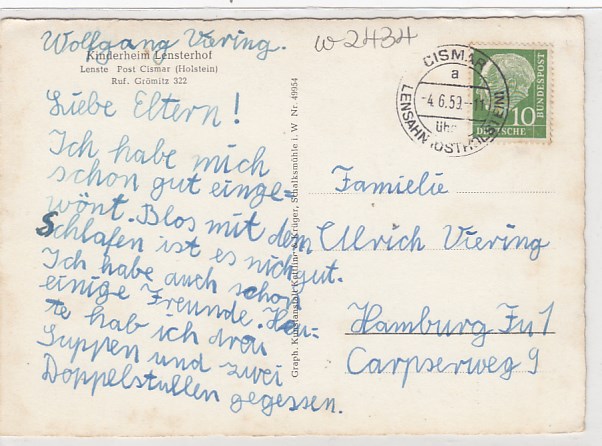 Wolfgang Viering.
w 2434
Kinderheim Lensterhof
Lenste Post Cismar (Holstein)
Ruf. Grömitz 322
Liebe Eltern!
Ich habe mich
schon gut einge-
wönt. Blos mit dem
Schlafen ist es nich gut.
Ich habe auch schon
einige Freunde. Heu-
te hab ich drei
Suppen und zwei
Doppelstullen gegessen.
Graph. Kunstanstalt Krüger, Schalksmühle i. W Nr. 49954
CISMAR
a
-4.6.59.-11
über
LENSAHN (OSTHOLSTEIN)
10
DEUTSCHE
BUNDESPOST
Famielie
Ulrich Viering
Hamburg Fu 1
Carpserweg 9